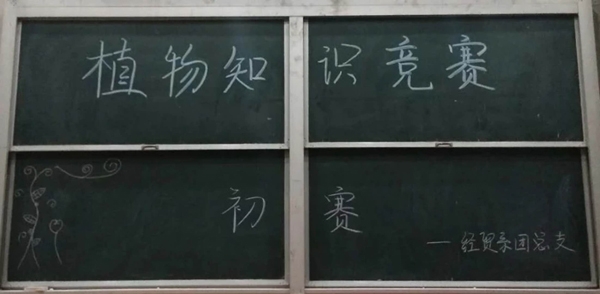 植物知识竞赛
初赛
—经贸系团总支